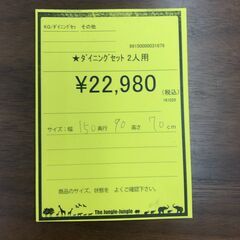 KG/ダイニングセット その他
★ダイニングセット 2人用
¥22,980
(税込)
サイズ:幅 150 奥行 90 高さ 70 cm
商品のサイズ、状態を よくご確認下さい。
The Jungle-Jungle